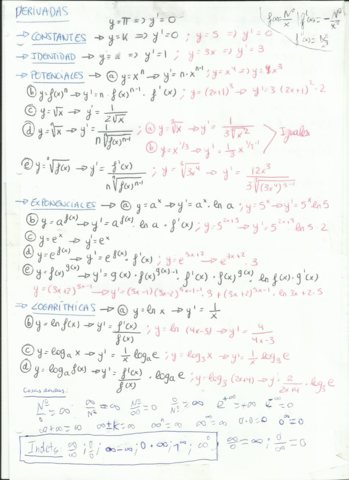 DERIVADAS
y=π => y'=0
f(x)=Nº/x f'(x)=-Nº/x²
→ CONSTANTES → y=k => y'=0 ; y=5 => y'=0
→ IDENTIDAD → y=x => y'=1 ; y=3x => y'=3
→ POTENCIALES → ⓐ y=xⁿ → y'=n·xⁿ⁻¹ ; y=x⁴ → y'=4x³
ⓑ y=f(x)ⁿ → y'=n·f(x)ⁿ⁻¹·f'(x) ; y=(2x+1)³ → y'=3(2x+1)²·2
ⓒ y=√x → y'=1/2√x
ⓓ y=ⁿ√x → y'=1/n ⁿ√f(x)ⁿ⁻¹ ; ⓐ y=³√x → y'=1/3 ³√x²
ⓑ y=x^1/3 → y'=1/3 x^1/3-1
Iguales
ⓔ y=ⁿ√f(x) → y'=f'(x)/n ⁿ√f(x)ⁿ⁻¹ ; y=³√3x⁴ → y'=12x³/3 ³√(3x⁴)³⁻¹
→ EXPONENCIALES → ⓐ y=aˣ → y'=aˣ·ln a ; y=5ˣ → y'=5ˣ ln5
ⓑ y=a^f(x) → y'=a^f(x)·ln a·f'(x) ; y=5^2x+3 → y'=5^2x+3·ln5·2
ⓒ y=eˣ → y'=eˣ
ⓓ y=e^f(x) → y'=e^f(x)·f'(x) ; y=e^3x+2 → e^3x+2·3
ⓔ y=f(x)^g(x) → y'=g(x)·f(x)^g(x)-1·f'(x)+f(x)^g(x)·ln f(x)·g'(x)
→ LOGARÍTMICAS → ⓐ y=ln x → y'=1/x
ⓑ y=ln f(x) → y'=f'(x)/f(x) ; y=ln(4x-3) → y'=4/4x-3
ⓒ y=logₐx → y'=1/x logₐe ; y=log₃x → y'=1/x log₃e
ⓓ y=logₐf(x) → y'=f'(x)/f(x)·logₐe ; y=log₃(2x+4) → y'=2/2x+4·log₃e
Nº/0=∞ ∞/Nº=∞ Nº/∞=0 0/Nº=0 e^+∞=+∞ e^-∞=0
∞+∞=∞ ∞±k=∞ ∞ⁿ=∞ ∞^∞=∞ 0·0=0 0^∞=0
Indets: ∞/∞ ; 0/0 ; ∞-∞ ; 0·∞ ; 1^∞ ; ∞⁰
∞/0=∞ ; 0/∞=0